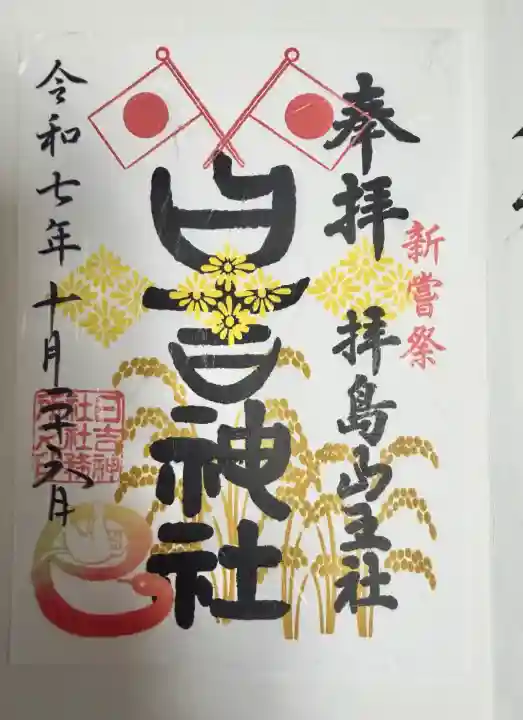 奉拝 拝島山王社
新嘗祭
日吉神社
令和七年十月二十六日
日吉神社社務所之印